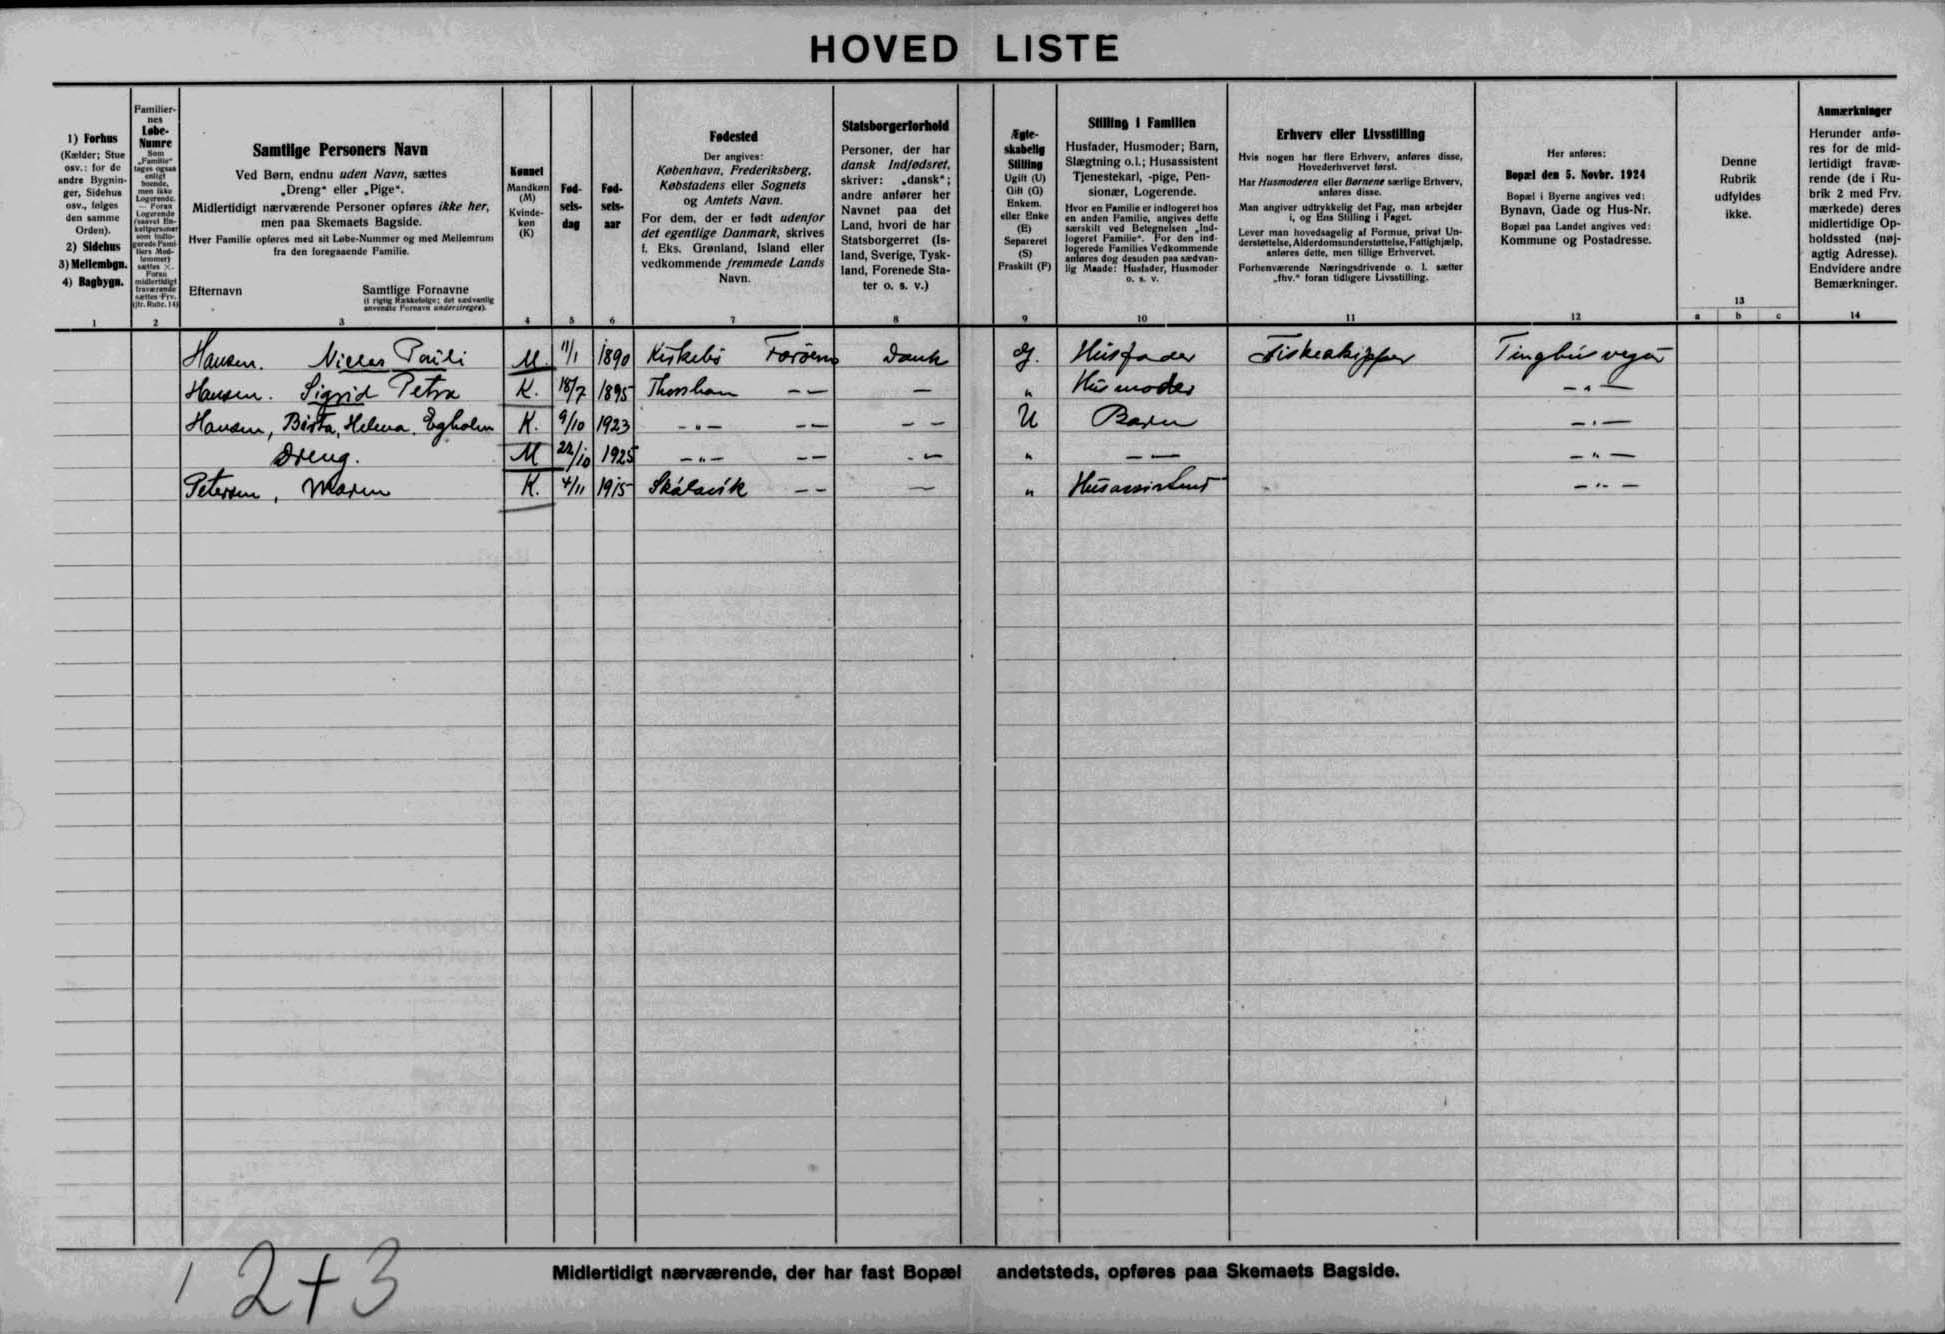 HOVED LISTE
1) Forhus
(Kælder; Stue
osv.: for de
andre Bygnin-
ger, Sidehus
osv., følges
den samme
Orden).
2) Sidehus
3) Mellembgn.
4) Bagbygn.
1
Familier-
nes
Løbe-
Numre
Som
„Familie“
tages ogsaa
enligt
boende,
men ikke
Logerende.
— Foran
Logerende
(saavel En-
keltpersoner
som indlo-
gerede Fami
liers Med-
lemmer)
sættes ×.
Foran
midlertidigt
fraværende
sættes Frv.
(jfr. Rubr. 14)
2
Samtlige Personers Navn
Ved Børn, endnu uden Navn, sættes
„Dreng“ eller „Pige“.
Midlertidigt nærværende Personer opføres ikke her,
men paa Skemaets Bagside.
Hver Familie opføres med sit Løbe-Nummer og med Mellemrum
fra den foregaaende Familie.
Efternavn Samtlige Fornavne
(i rigtig Rækkefølge; det sædvanlig
anvendte Fornavn understreges).
3
Kønnet
Mandkøn
(M)
Kvinde-
køn
(K)
4
Fød-
sels-
dag
5
Fød-
sels-
aar
6
Fødested
Der angives:
København, Frederiksberg,
Købstadens eller Sognets
og Amtets Navn.
For dem, der er født udenfor
det egentlige Danmark, skrives
f. Eks. Grønland, Island eller
vedkommende fremmede Lands
Navn.
7
Statsborgerforhold
Personer, der har
dansk Indfødsret,
skriver: „dansk“;
andre anfører her
Navnet paa det
Land, hvori de har
Statsborgerret (Is-
land, Sverige, Tysk-
land, Forenede Sta-
ter o. s. v.)
8
Ægte-
skabelig
Stilling
Ugift (U)
Gift (G)
Enkem.
eller Enke
(E)
Separeret
(S)
Fraskilt (F)
9
Stilling i Familien
Husfader, Husmoder; Barn,
Slægtning o.l.; Husassistent
Tjenestekarl, -pige, Pen-
sionær, Logerende.
Hvor en Familie er indlogeret hos
en anden Familie, angives dette
særskilt ved Betegnelsen „Ind-
logeret Familie“. For den ind-
logerede Families Vedkommende
anføres dog desuden paa sædvan-
lig Maade: Husfader, Husmoder
o. s. v.
10
Erhverv eller Livsstilling
Hvis nogen har flere Erhverv, anføres disse,
Hovederhvervet først.
Har Husmoderen eller Børnene særlige Erhverv,
anføres disse.
Man angiver udtrykkelig det Fag, man arbejder
i, og Ens Stilling i Faget.
Lever man hovedsagelig af Formue, privat Un-
derstøttelse, Alderdomsunderstøttelse, Fattighjælp,
anføres dette, men tillige Erhvervet.
Forhenværende Næringsdrivende o. l. sætter
„fhv.“ foran tidligere Livsstilling.
11
Her anføres:
Bopæl den 5. Novbr. 1924
Bopæl i Byerne angives ved:
Bynavn, Gade og Hus-Nr.
Bopæl paa Landet angives ved:
Kommune og Postadresse.
12
Denne
Rubrik
udfyldes
ikke.
13
a b c
Anmærkninger
Herunder anfø-
res for de mid-
lertidigt fravæ-
rende (de i Ru-
brik 2 med Frv.
mærkede) deres
midlertidige Op-
holdssted (nøj-
agtig Adresse).
Endvidere andre
Bemærkninger.
14
Hansen. Niclas Pauli M. 11/1 1890 Kirkebø Færöerne Dansk G. Husfader Fiskeskipper Tinghusvegur
Hansen. Sigrid Petra K. 18/7 1895 Thorshavn — — — „ Husmoder — „ —
Hansen, Birta, Helena, Egholm K. 9/10 1923 — „ — — — — — U Barn — „ —
Dreng. M 22/10 1925 — „ — — — — — „ — — — „ —
Petersen, Maren K. 4/11 1915 Skálavík — — — „ Husassistent — „ —
Midlertidigt nærværende, der har fast Bopæl andetsteds, opføres paa Skemaets Bagside.
1 2+3